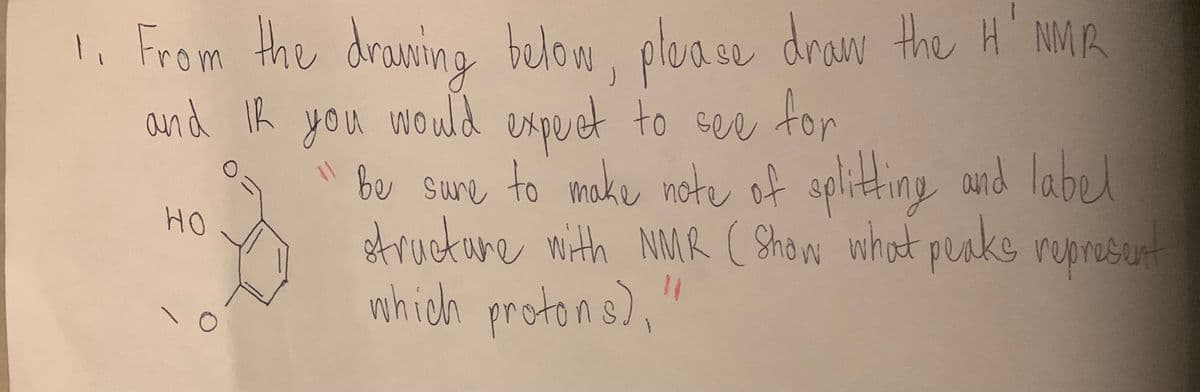 1. From the drawing below, please draw the H' NMR
and IR you would expect to see for
" Be sure to make note of splitting and label
structure with NMR ( Show what peaks represent
which protons). "
O
HO
O